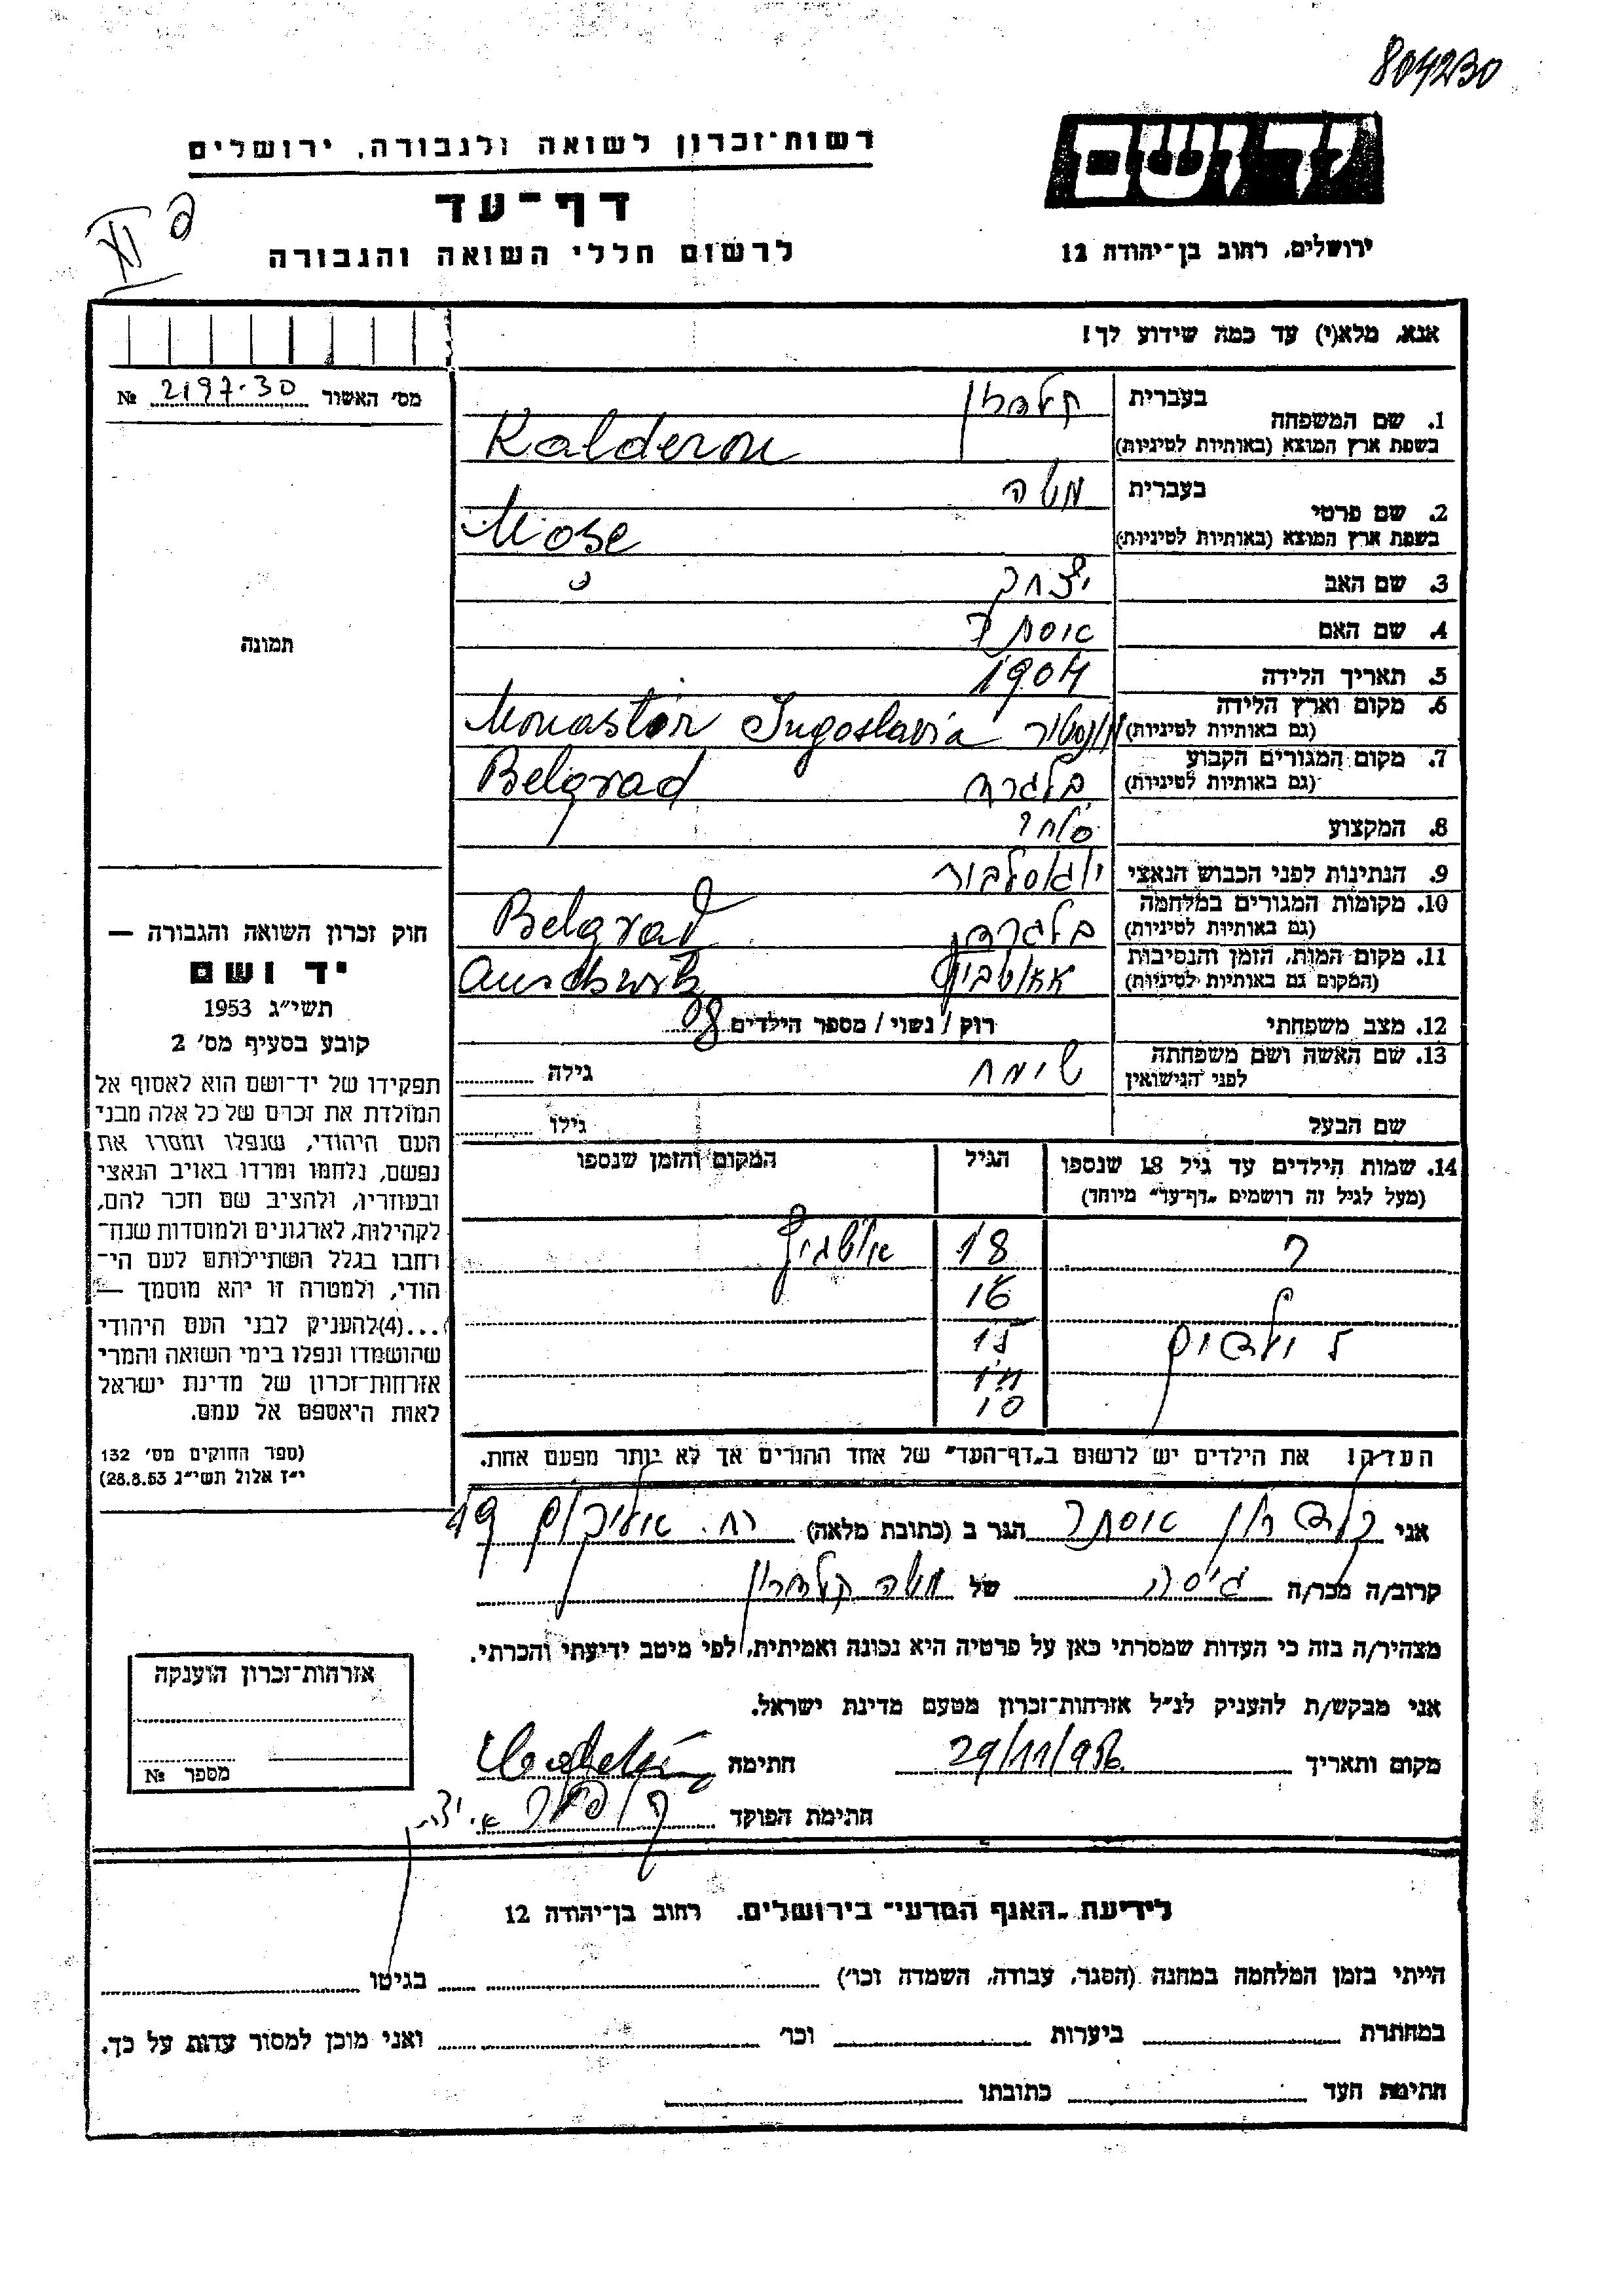 804230
רשות־זכרון לשואה ולגבורה, ירושלים
יד ושם
דף־עד
לרשום חללי השואה והגבורה
ירושלים, רחוב בן־יהודה 12
אנא, מלא(י) עד כמה שידוע לך!
מס׳ האשור 2197-30 №
1. שם המשפחה בעברית קלדרון
בשפת ארץ המוצא (באותיות לטיניות) Kalderon
2. שם פרטי בעברית משה
בשפת ארץ המוצא (באותיות לטיניות) Mose
3. שם האב יצחק
4. שם האם אסתר
5. תאריך הלידה 1904
6. מקום וארץ הלידה (גם באותיות לטיניות) מונסטיר Monastir Jugoslavia
7. מקום המגורים הקבוע (גם באותיות לטיניות) בלגרד Belgrad
8. המקצוע סוחר
9. הנתינות לפני הכבוש הנאצי
10. מקומות המגורים במלחמה (גם באותיות לטיניות) Belgrad
11. מקום המות, הזמן והנסיבות (המקום גם באותיות לטיניות)
12. מצב משפחתי רוק / נשוי / מספר הילדים
13. שם האשה ושם משפחתה לפני הנישואין שימחה גילה
שם הבעל גילו
14. שמות הילדים עד גיל 18 שנספו הגיל המקום והזמן שנספו
(מעל לגיל זה רושמים „דף־עד״ מיוחד)
18
16
ילדים
10
העדה! את הילדים יש לרשום ב„דף־העד״ של אחד ההורים אך לא יותר מפעם אחת.
תמונה
חוק זכרון השואה והגבורה —
יד ושם
תשי״ג 1953
קובע בסעיף מס׳ 2
תפקידו של יד־ושם הוא לאסוף אל
המולדת את זכרם של כל אלה מבני
העם היהודי, שנפלו ומסרו את
נפשם, נלחמו ומרדו באויב הנאצי
ובעוזריו, ולהציב שם וזכר להם,
לקהילות, לארגונים ולמוסדות שנח־
רחבו בגלל השתייכותם לעם הי־
הודי, ולמטרה זו יהא מוסמך —
...(4)להעניק לבני העם היהודי
שהושמדו ונפלו בימי השואה והמרי
אזרחות־זכרון של מדינת ישראל
לאות היאספם אל עמם.
(ספר החוקים מס׳ 132
י״ז אלול תשי״ג 28.8.53)
אני קלדרון אסתר הגר ב (כתובת מלאה) רח. 19
קרוב/ה מכר/ה גיסה של משה קלדרון
מצהיר/ה בזה כי העדות שמסרתי כאן על פרטיה היא נכונה ואמיתית, לפי מיטב ידיעתי והכרתי.
אני מבקש/ת להעניק לנ״ל אזרחות־זכרון מטעם מדינת ישראל.
מקום ותאריך 29/11/956 חתימה
חתימת הפוקד
אזרחות־זכרון הוענקה
מספר №
לידיעת „האגף המדעי״ בירושלים, רחוב בן־יהודה 12
הייתי בזמן המלחמה במחנה (הסגר, עבודה, השמדה וכו׳) בגיטו
במחתרת ביערות וכו׳ ואני מוכן למסור עדות על כך.
חתימת העד כתובתו